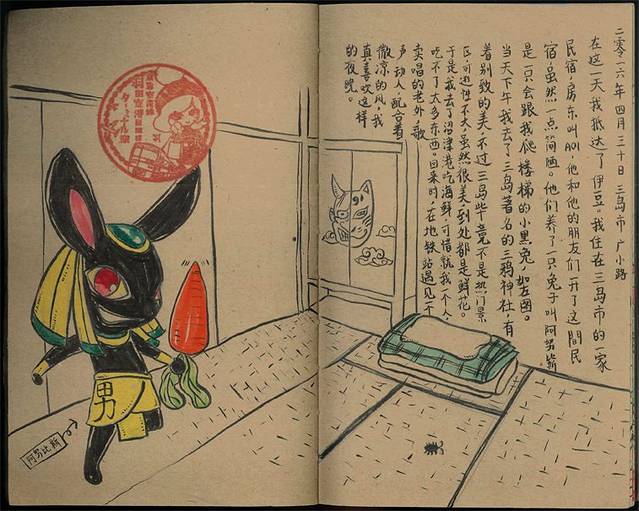 二零一六年四月三十日 三岛市 广小路
在这一天我抵达了伊豆。我住在三岛市的一家
民宿,房东叫AOI,他和他的朋友们开了这間民
宿虽然一点简陋。他们养了一只兔子叫阿努比斯
是一只会跟我爬楼梯的小黑兔,如左图。
当天下午我去了三岛著名的三鸦神社,有
着别致的美,不过三岛毕竟不是热门景
区,可逛性不大,虽然很美,到处都是鲜花。
于是我去了沼津港吃海鲜,可惜就我一个人,
吃不了太多东西。回来时,在地铁站遇见一个
卖唱的老外,歌
声动人,配合着
微凉的风,我
真喜欢这样
的夜晚。
男
阿努比斯